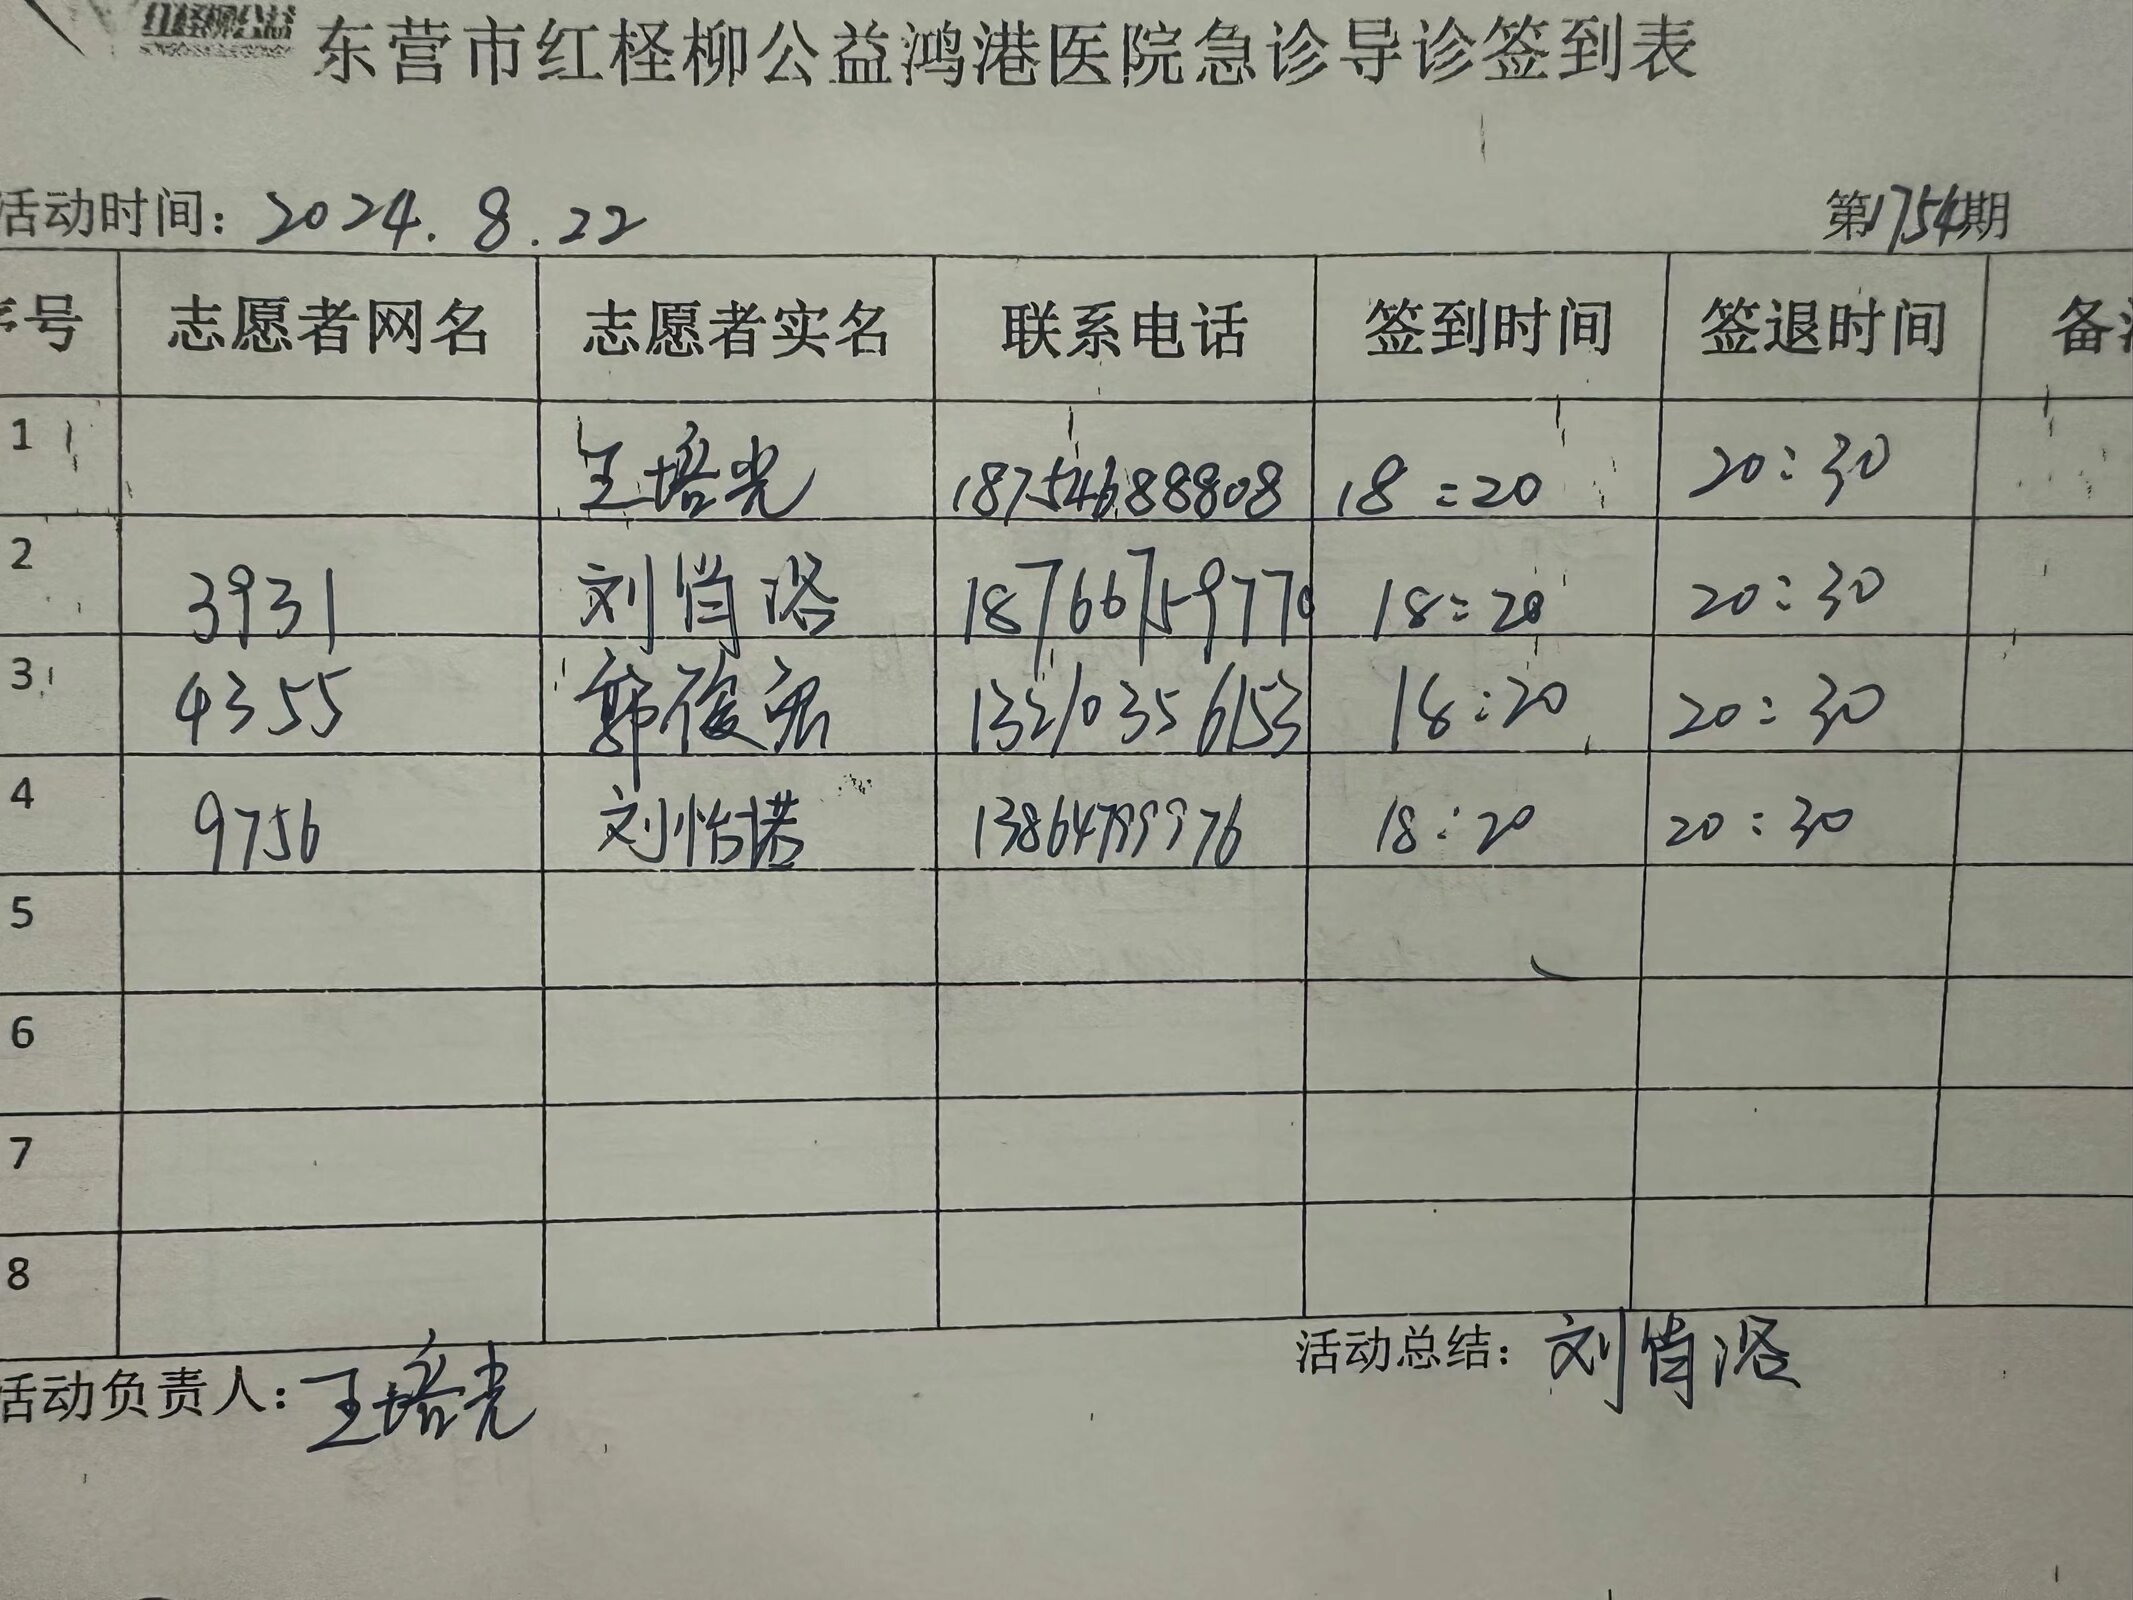 红柽柳公益
东营市红柽柳公益鸿港医院急诊导诊签到表
活动时间：2024.8.22 第1754期
序号 志愿者网名 志愿者实名 联系电话 签到时间 签退时间 备注
1 王培光 18754688808 18:20 20:30
2 3931 刘肖洛 18766759770 18:20 20:30
3 4355 郭俊宏 13210356153 18:20 20:30
4 9756 刘怡诺 13864799976 18:20 20:30
5
6
7
8
活动负责人：王培光 活动总结：刘肖洛